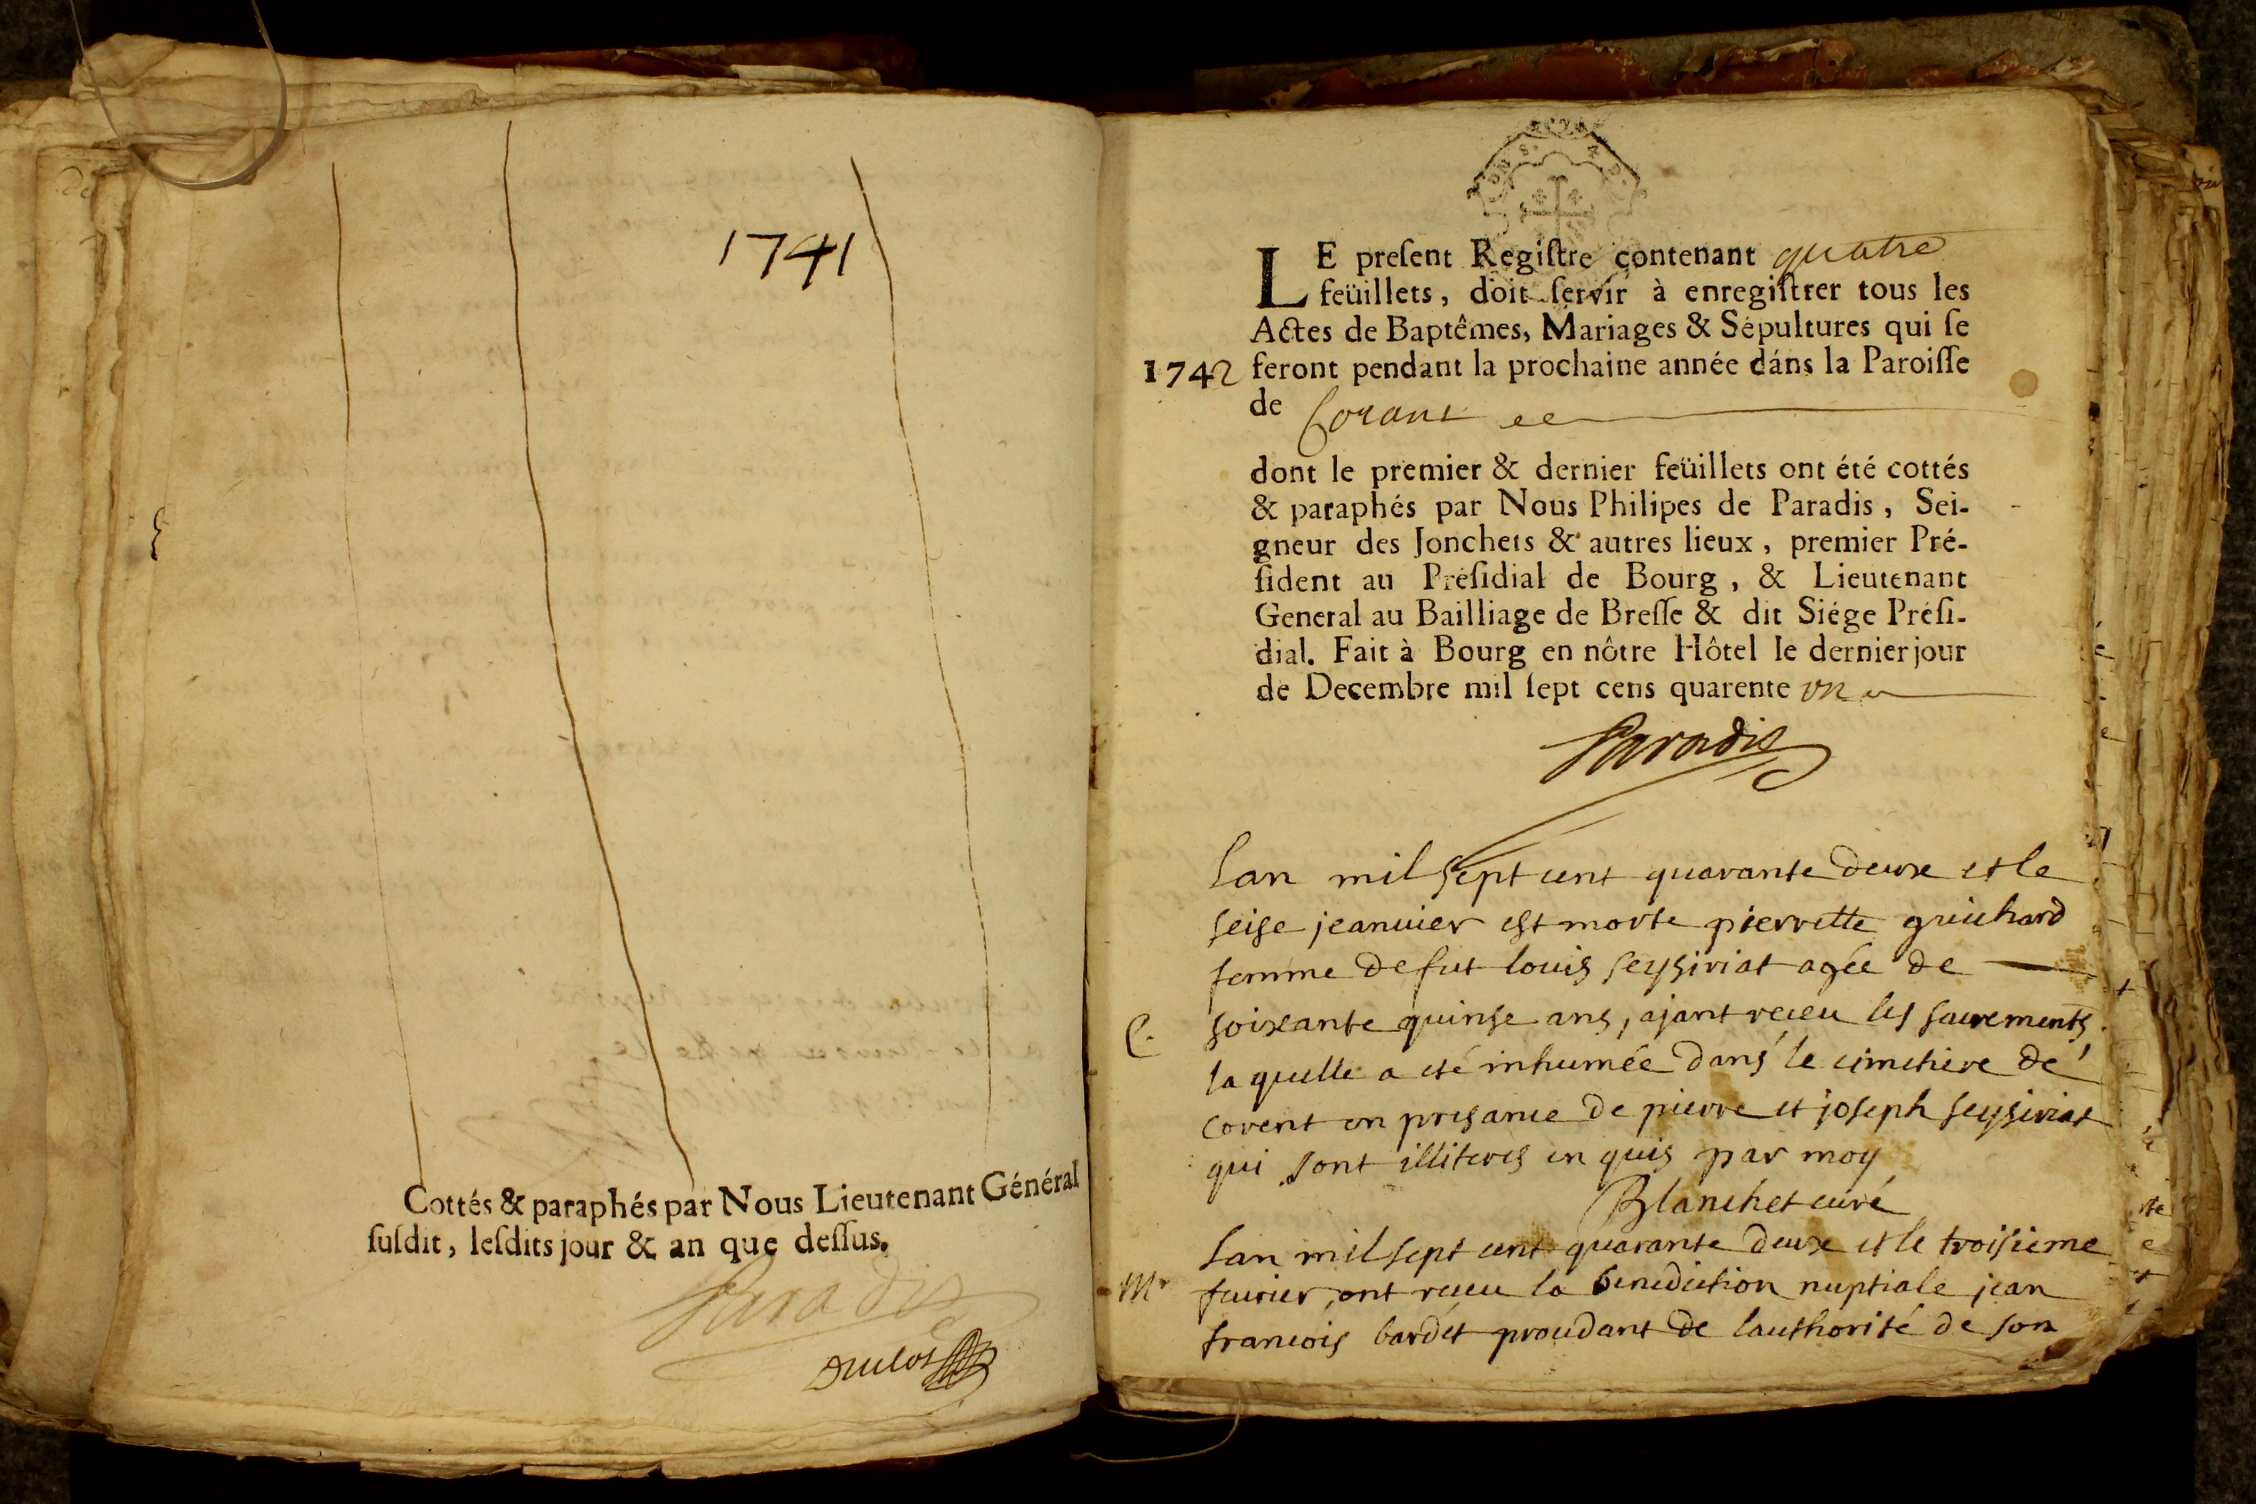 1741
Cottés & paraphés par Nous Lieutenant Général
suſdit, leſdits jour & an que deſſus.
Paradis
Duclos
LE preſent Regiſtre contenant quatre
feüillets, doit ſervir à enregiſtrer tous les
Actes de Baptêmes, Mariages & Sépultures qui ſe
1742 feront pendant la prochaine année dáns la Paroiſſe
de Corant
dont le premier & dernier feüillets ont été cottés
& paraphés par Nous Philipes de Paradis, Sei-
gneur des Jonchets & autres lieux, premier Pré-
ſident au Préſidial de Bourg, & Lieutenant
General au Bailliage de Breſſe & dit Siége Préſi-
dial. Fait à Bourg en nôtre Hôtel le dernier jour
de Decembre mil ſept cens quarente vn
Paradis
Lan mil sept cent quarante deux et le
seise jeanuier est morte pierrette guichard
femme de fut louis seysiriat agée de
C. soixante quinse ans, ajant receu les sacrements
la quelle a eté inhumée dans le cimetiere de
corent en presance de pierre et joseph seysiriat
qui sont illiteres en quis par moy
Blanchet curé
Lan mil sept cent quarante deux et le troisieme
Mr feurier, ont receu la benediction nuptiale jean
francois bardet proudant de lauthorité de son